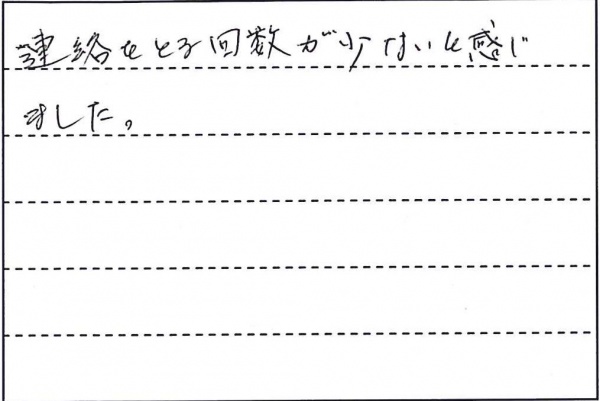 連絡をとる回数が少ないと感じ
ました。